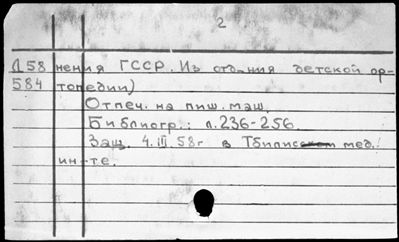 2
Д58 нения ГССР. Из отд-ния детской ор-
584 топедии)
Отпеч. на пиш. маш.
Библиогр.: л. 236-256.
Защ. 4.III.58г в Тбилисском мед.
ин-те.